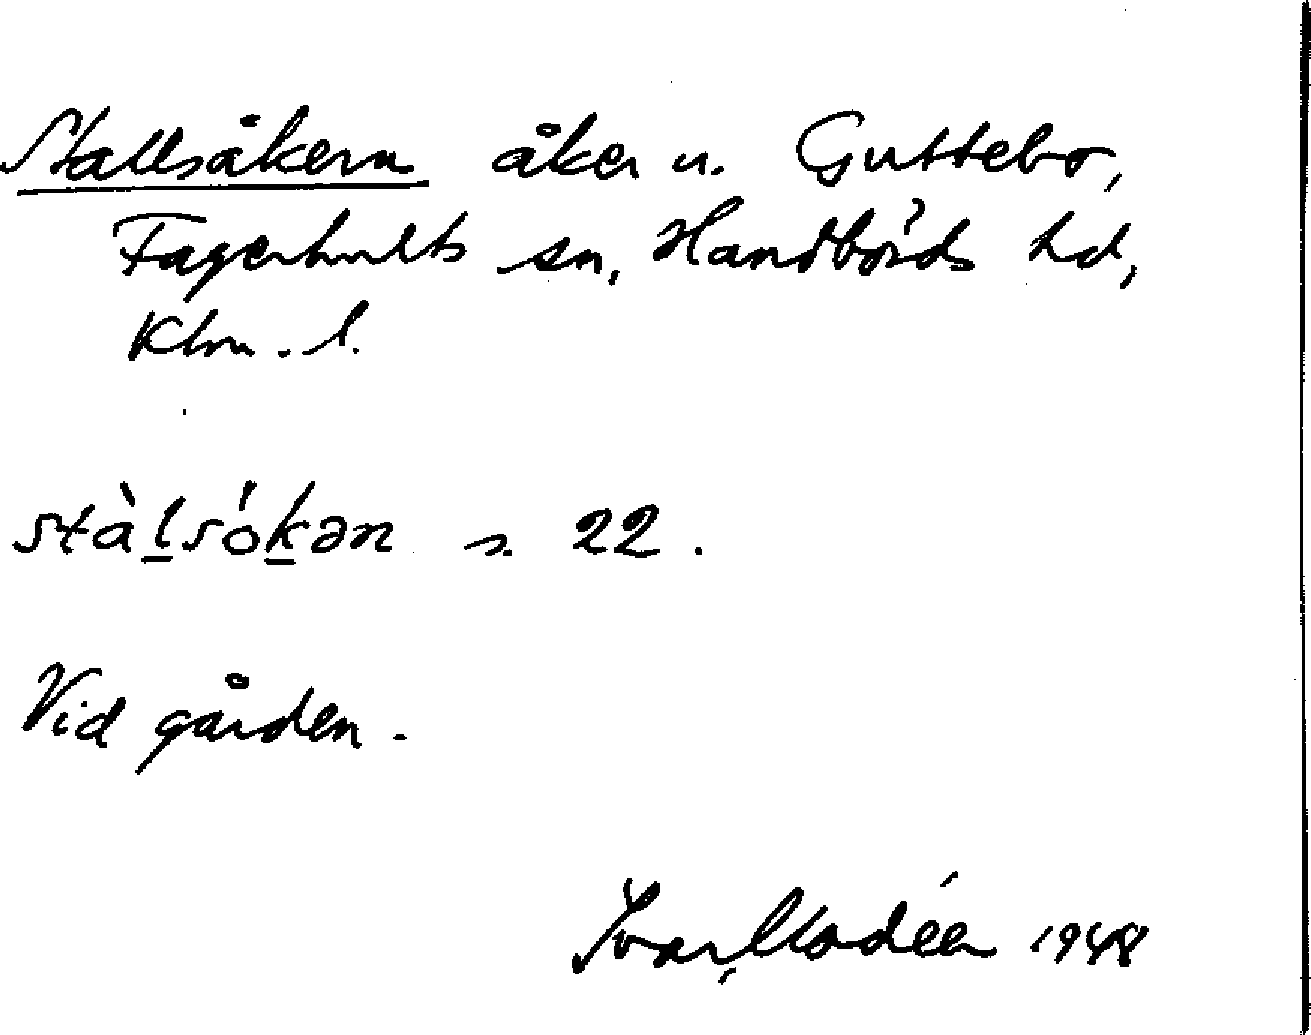 Stallsåkern åker u. Guttebo,
Fagerhults sn, Handbörds hd,
Klm. l.
stàlsókən s. 22.
Vid gården.
Ivar Modéer 1948